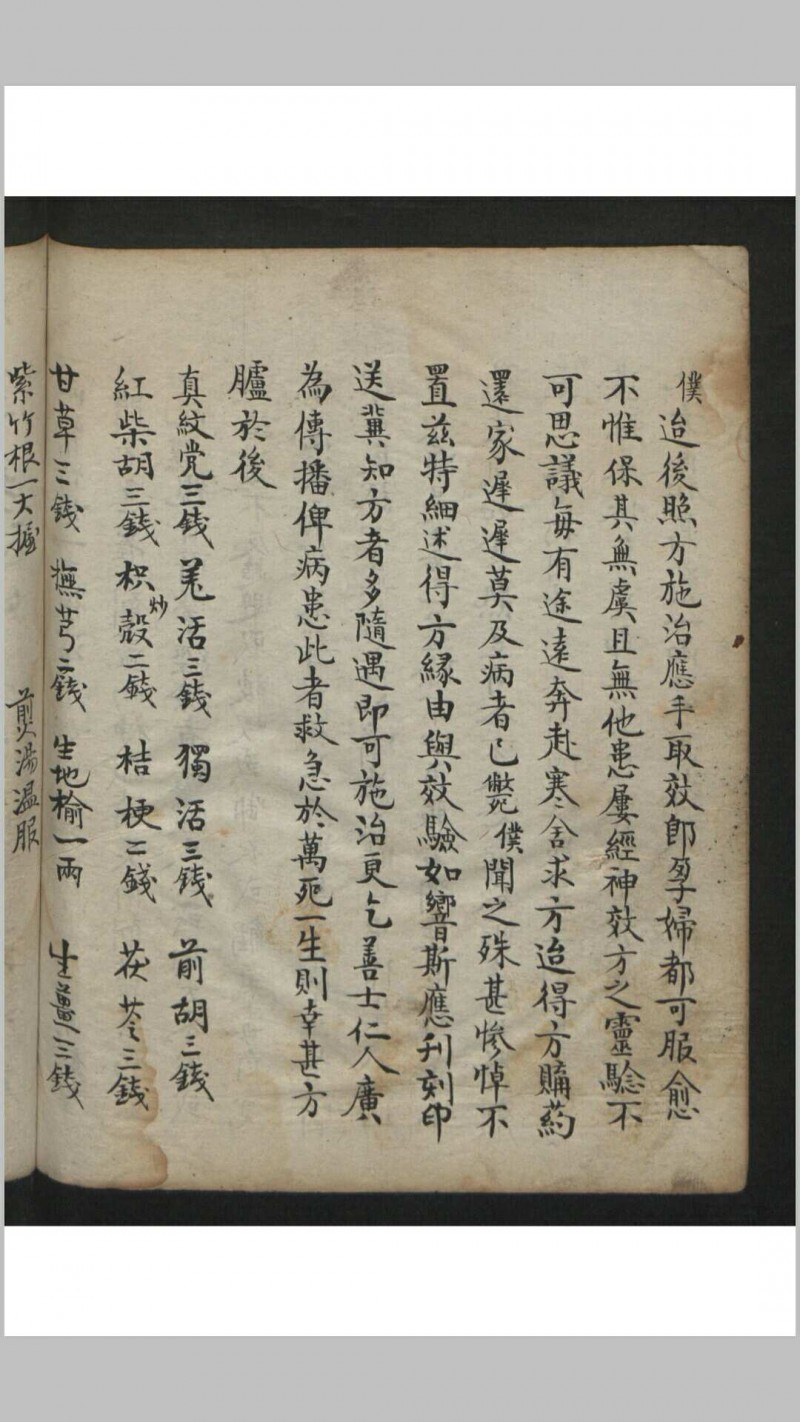 僕迨後照方施治應手取效即孕婦都可服愈
不惟保其無虞且無他患屢經神效方之靈驗不
可思議每有途遠奔赴寒舍求方迨得方贖葯
還家遲遲莫及病者已斃僕聞之殊甚慘悼不
置茲特細述得方緣由與效驗如響斯應刋刻印
送冀知方者多隨遇即可施治更乞善士仁人廣
為傳播俾病患此者救急於萬死一生則幸甚方
臚於後
真紋党三錢 羌活三錢 獨活三錢 前胡三錢
紅柴胡三錢 枳殼炒二錢 桔梗二錢 茯苓三錢
甘草三錢 撫芎二錢 生地榆一兩 生薑三錢
紫竹根一大握 煎湯温服